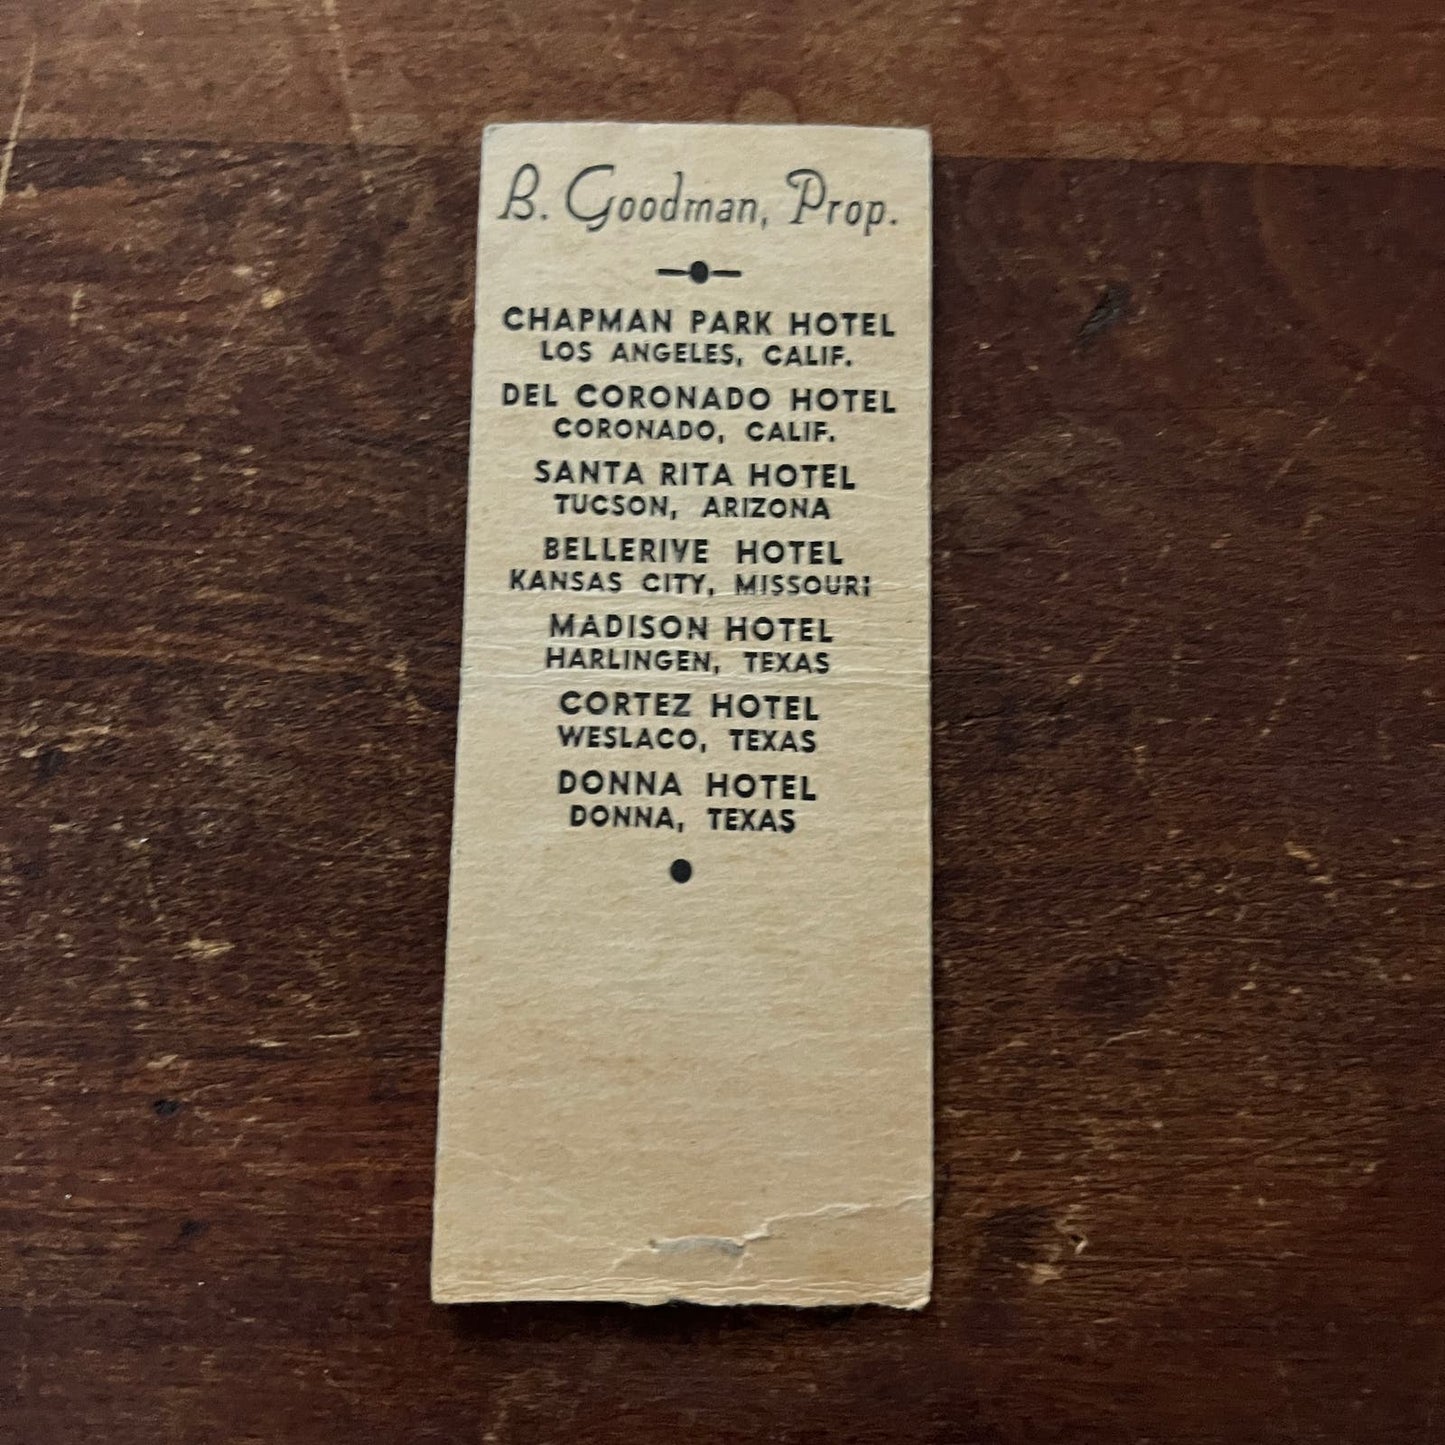 B. Goodman, Prop.
CHAPMAN PARK HOTEL
LOS ANGELES, CALIF.
DEL CORONADO HOTEL
CORONADO, CALIF.
SANTA RITA HOTEL
TUCSON, ARIZONA
BELLERIVE HOTEL
KANSAS CITY, MISSOURI
MADISON HOTEL
HARLINGEN, TEXAS
CORTEZ HOTEL
WESLACO, TEXAS
DONNA HOTEL
DONNA, TEXAS